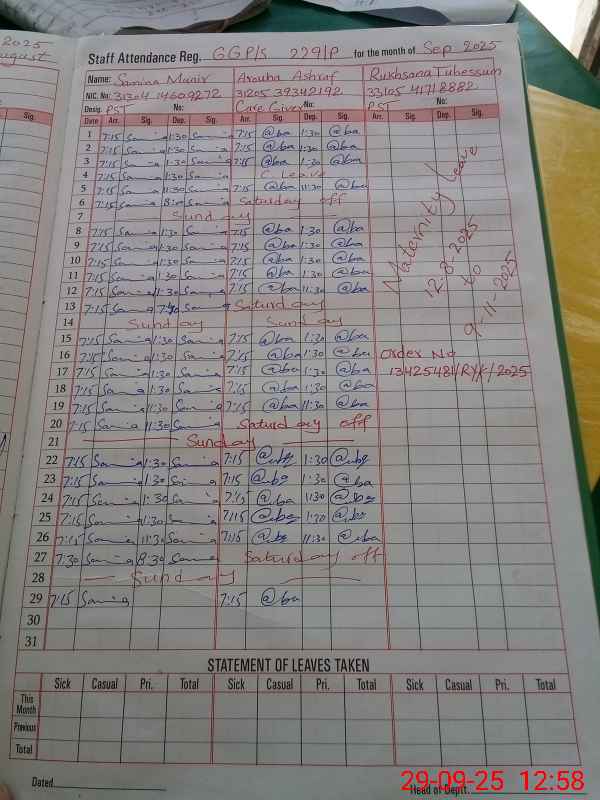 2025
August
Sig.
Staff Attendance Reg. GGP/S 229/P for the month of Sep 2025
Name: Samina Munir Arouba Ashraf Rukhsana Tubessum
NIC. No: 31304 14609272 31205 39342192 33105 41718882
Desig. PST No: Care Giver No: PST No:
Date Arr. Sig. Dep. Sig. Arr. Sig. Dep. Sig. Arr. Sig. Dep. Sig.
1 7:15 Samina 1:30 Samina 7:15 @ba 1:30 @ba
2 7:15 Samina 1:30 Samina 7:15 @ba 1:30 @ba
3 7:15 Samina 1:30 Samina 7:15 @ba 1:30 @ba
4 7:15 Samina 1:30 Samina C. Leave
5 7:15 Samina 11:30 Samina 7:15 @ba 11:30 @ba
6 7:15 Samina Samina Saturday off
7 Sunday
8 7:15 Samina 1:30 Samina 7:15 @ba 1:30 @ba
9 7:15 Samina 1:30 Samina 7:15 @ba 1:30 @ba
10 7:15 Samina 1:30 Samina 7:15 @ba 1:30 @ba
11 7:15 Samina 1:30 Samina 7:15 @ba 1:30 @ba
12 7:15 Samina 11:30 Samina 7:15 @ba 11:30 @ba
13 7:15 Samina Samina Saturday
14 Sunday Sunday
15 7:15 Samina 1:30 Samina 7:15 @ba 1:30 @ba
16 7:15 Samina 1:30 Samina 7:15 @ba 1:30 @ba
17 7:15 Samina 1:30 Samina 7:15 @ba 1:30 @ba
18 7:15 Samina 1:30 Samina 7:15 @ba 1:30 @ba
19 7:15 Samina 11:30 Samina 7:15 @ba 11:30 @ba
20 7:15 Samina 11:30 Samina Saturday off
21 Sunday
22 7:15 Samina 1:30 Samina 7:15 @ba 1:30 @ba
23 7:15 Samina 1:30 Samina 7:15 @ba 1:30 @ba
24 7:15 Samina 1:30 Samina 7:15 @ba 1:30 @ba
25 7:15 Samina 1:30 Samina 7:15 @ba 1:30 @ba
26 7:15 Samina 11:30 Samina 7:15 @ba 11:30 @ba
27 7:30 Samina 8:30 Samina Saturday off
28 Sunday
29 7:15 Samina 7:15 @ba
30
31
Maternity Leave
12-8-2025
to
9-11-2025
Order No
13425481/RYK/2025
STATEMENT OF LEAVES TAKEN
Sick Casual Pri. Total Sick Casual Pri. Total Sick Casual Pri. Total
This Month
Previous
Total
Dated
Head of Deptt.
29-09-25 12:58